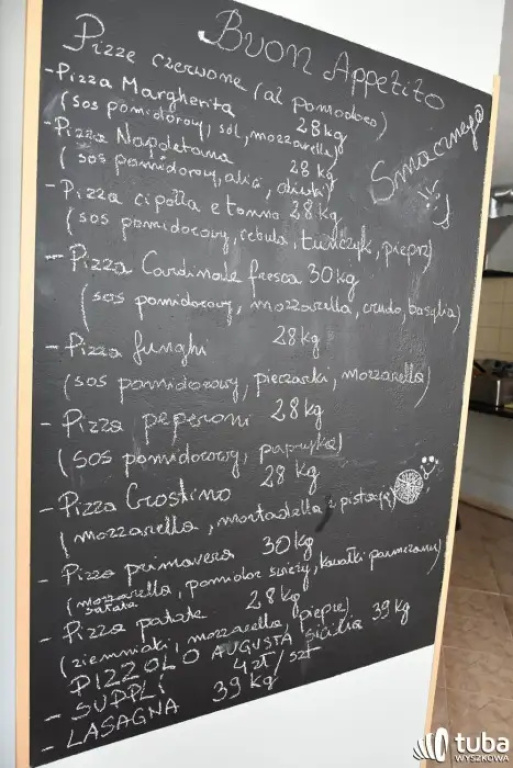 Buon Appetito
Pizze czerwone (al pomodoro)
Smacznego
- Pizza Margherita 28kg
(sos pomidorowy, sól, mozzarella)
- Pizza Napoletana 28 kg
(sos pomidorowy, alici, oliwki)
- Pizza cipolla e tonno 28 kg
(sos pomidorowy, cebula, tuńczyk, pieprz)
- Pizza Cardinale fresca 30 kg
(sos pomidorowy, mozzarella, crudo, bazylia)
- Pizza funghi 28kg
(sos pomidorowy, pieczarki, mozzarella)
- Pizza peperoni 28kg
(sos pomidorowy, papryka)
- Pizza Crostino 28 kg
(mozzarella, mortadella z pistacją)
- Pizza primavera 30 kg
(mozz sałata, pomidor świeży, kawałki parmezanu)
- Pizza patate 28kg
(ziemniaki, mozzarella, pieprz)
PIZZOLO AUGUSTA Sicilia 39 kg
- SUPPLÌ 4zł/szt
- LASAGNA 39 kg
tuba
WYSZKOWA